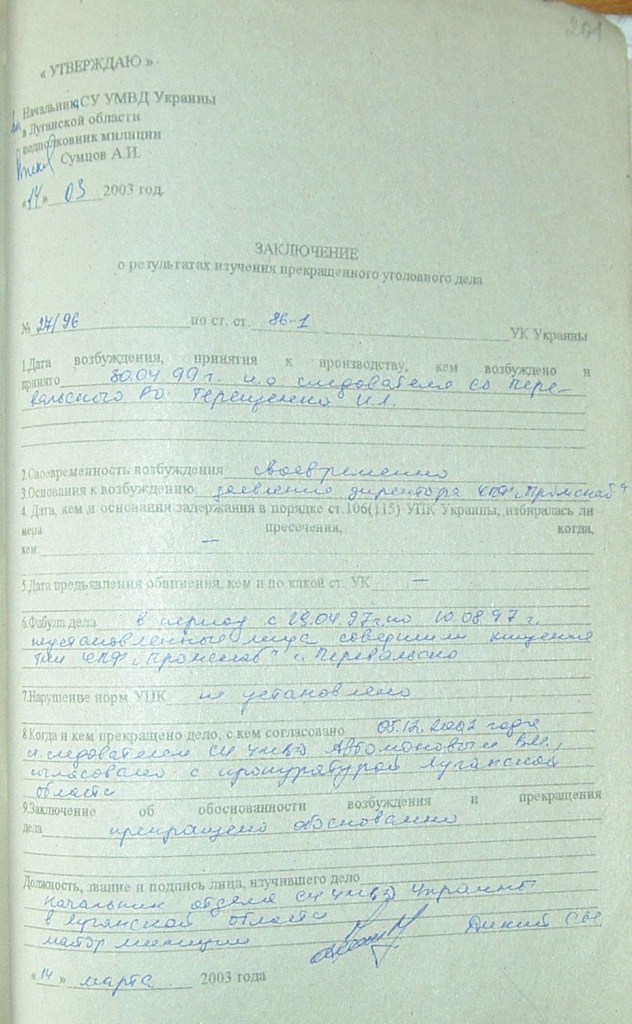 201
« УТВЕРЖДАЮ »
Начальник СУ УМВД Украины
в Луганской области
подполковник милиции
Сумцов А.И.
«14» 03 2003 год.
ЗАКЛЮЧЕНИЕ
о результатах изучения прекращенного уголовного дела
№ 27/96 по ст. ст. 86-1 УК Украины
1.Дата возбуждения, принятия к производству, кем возбуждено и
принято 30.04.99 г. и.о. следователя СО Пере-
вальского РО Терещенко И.Л.
2.Своевременность возбуждения своевременно
3.Основания к возбуждению заявление директора ЧПФ „Промснаб"
4. Дата, кем и основания задержания в порядке ст.106(115) УПК Украины, избиралась ли
мера пресечения, когда,
кем: —
5.Дата предъявления обвинения, кем и по какой ст. УК —
6.Фабула дела в период с 28.04.97г. по 10.08.97 г.
неустановленные лица совершили хищение
ТМЦ ЧПФ „Промснаб" г. Перевальска
7.Нарушение норм УПК не установлено
8.Когда и кем прекращено дело, с кем согласовано 05.12.2002 года
следователем СУ УМВД Автомоновым В.И.,
согласовано с прокуратурой Луганской
области
9.Заключение об обоснованности возбуждения и прекращения
дела прекращено обоснованно
Должность, звание и подпись лица, изучившего дело
начальник отдела СУ УМВД Украины
в Луганской области
майор милиции Дикий С.Н.
«14» марта 2003 года